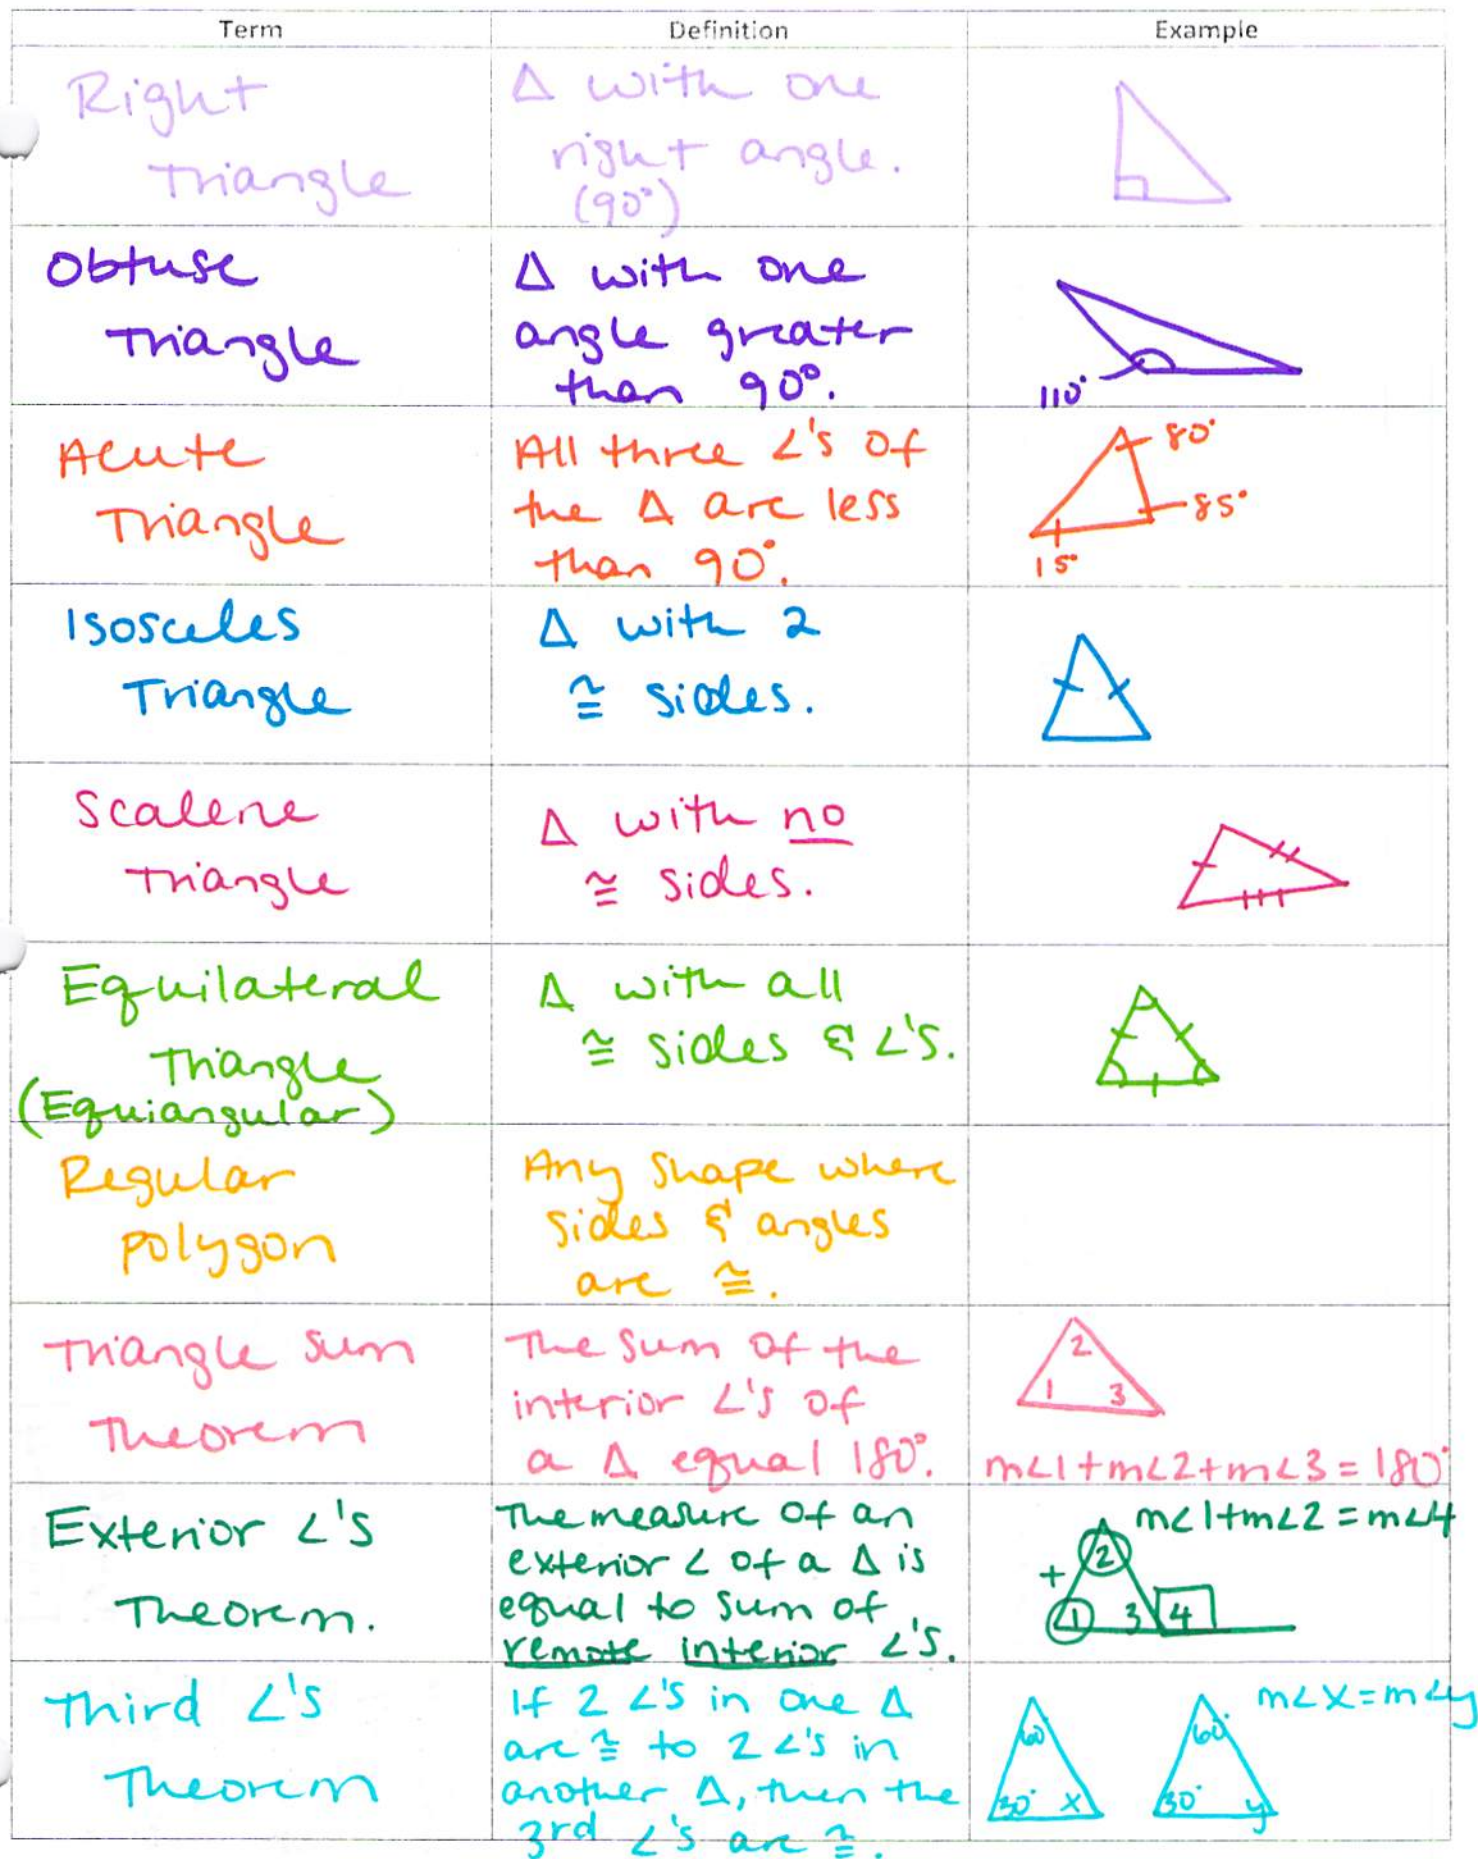 Term Definition Example
Right
Triangle
Δ with one
right angle.
(90°)
Obtuse
Triangle
Δ with one
angle greater
than 90°.
110°
Acute
Triangle
All three ∠'s of
the Δ are less
than 90°.
80°
85°
15°
Isosceles
Triangle
Δ with 2
≅ sides.
Scalene
Triangle
Δ with no
≅ sides.
Equilateral
Triangle
(Equiangular)
Δ with all
≅ sides & ∠'s.
Regular
polygon
Any shape where
sides & angles
are ≅.
Triangle Sum
Theorem
The sum of the
interior ∠'s of
a Δ equal 180°.
2
1 3
m∠1+m∠2+m∠3=180°
Exterior ∠'s
Theorem.
The measure of an
exterior ∠ of a Δ is
equal to sum of
remote interior ∠'s.
m∠1+m∠2=m∠4
2
+
1 3 4
Third ∠'s
Theorem
If 2 ∠'s in one Δ
are ≅ to 2 ∠'s in
another Δ, then the
3rd ∠'s are ≅.
m∠x=m∠y
60° 60°
30° x 30° y